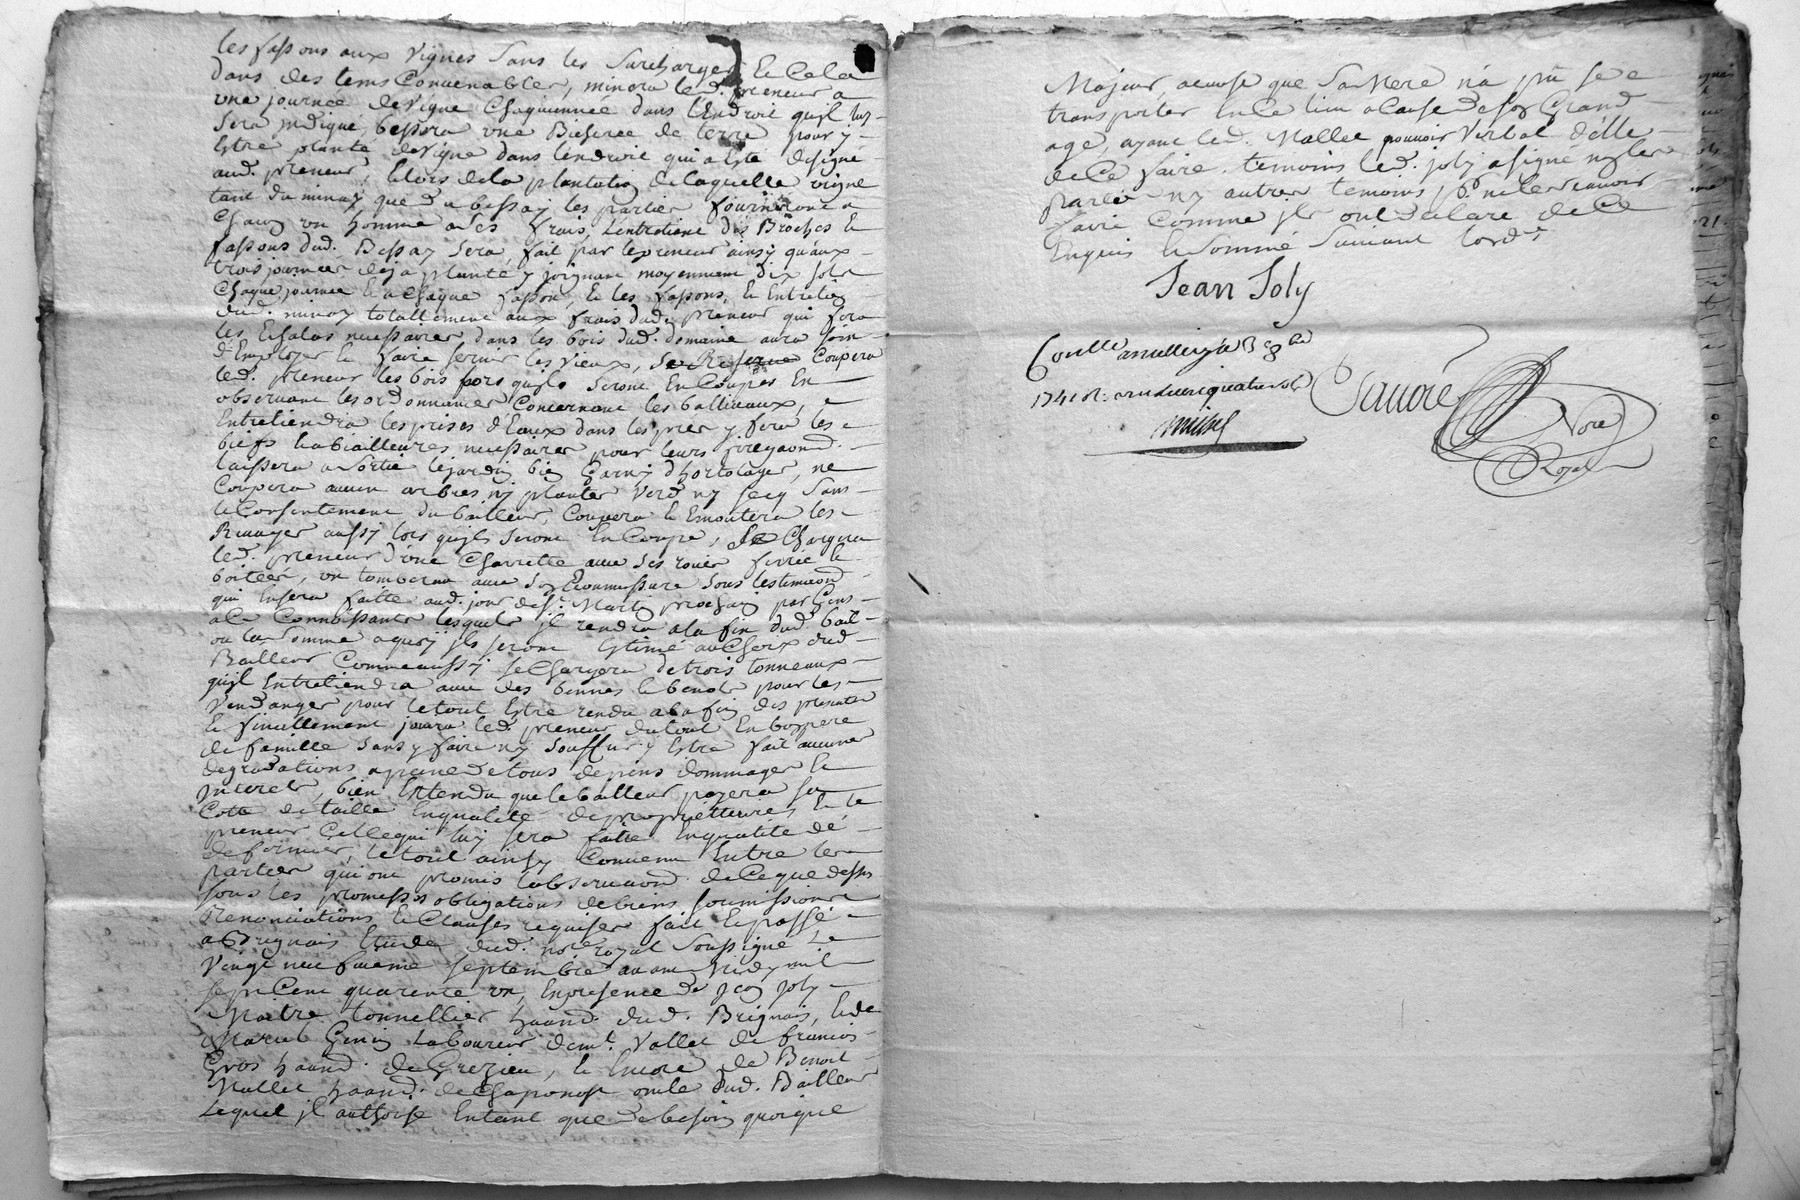 les fassons aux vignes sans les surcharger, Et Cela
dans des tems Convenables, minera led. preneur
une journée de vigne Chaquannée dans l'Endroit qu'il luy
sera indiqué, bessera une Bicherée de terre pour y
Estre planté de vigne dans l'endroit qui a Esté designé
aud. preneur, & lors de la plantation de laquelle vigne
tant du minay que du bessay les parties fourniront
Chacun un homme a ses frais, L'entretient des Broches &
fassons dud. Bessay sera fait par le preneur ainsy qu'aux
trois journées deja planté y joignant moyennant dix sols
Chaque journée & a Chaque fasson, & les fassons, & Entretien
dud. minay totallement aux frais dud. preneur qui fera
les Echalas necessaires dans les bois dud. domaine aura soin
d'Employer & faire servir les vieux, Coupera
led. preneur les bois lors quils seront En Coupes En
observant les ordonnances Concernant les balliveaux,
Entretiendra les prises d'Eaux dans les prés y fera les
biefs & abrailleures necessaires pour leurs
laissera a sortie le jardin bien garny d'hortolages, ne
Coupera aucun arbres ny plantes verd ny secq sans
le Consentement du bailleur, Coupera & Emoutera les
Rivages aussy lors quils seront En Coupe, se Chargera
led. preneur d'une Charrette avec ses roues ferrée &
boitées, un tombereau avec son sous l'estimaon
qui En sera faitte aud. jour de st. Martin prochain par Gens
a Ce Connoissants lesquels il rendra a la fin dud. bail
ou la somme a quoy ils seront Estimé au Choix dud.
Bailleur Comme aussy se Chargera de trois tonneaux
quil Entretiendra avec des bennes & benots pour les
vendanges pour le tout Estre rendu a la fin des presentes
Et finallement jouira led. preneur du tout En bon pere
de famille sans y faire ny souffrir y Estre fait aucunes
degradations a peine de tous depens dommages &
Interets, bien Entendu que le bailleur payera sa
Cotte de taille En qualité de proprietteires Et le
preneur Celle qui luy sera faitte En qualité de
de fermier, le tout ainsy Convenu Entre les
parties qui ont promis l'observaon de Ce que dessus
sous les promesses obligations de biens soumissions
Renonciations, & Clauses requises fait & passé
a Brignais Etude dud. nore. royal soussigné Le
vingt neufvieme septembre avant midy mil
sept Cent quarente un, En presence de Jean Joly
Maitre tonnellier haand. dud. Brignais, & de
Genin Laboureur demt. Vallet de francois
Gros haand. de Grezieu, & Encore de Benoit
Mallet haand. de Chaponost oncle dud. Bailleur
Lequel il authorise Entant que de besoin quoique
Majeur, a cause que sa Mere n'a pu se
transporter En Ce lieu a cause de son Grand
age, ayant led. Mallet pouvoir verbal d'elle
de Ce faire. temoins led. joly a signé ny les
parties ny autres temoins, pr. ne le scavoir
faire Comme ils ont declaré de Ce
Enquis & sommé suivant l'ord.
Jean Joly
1741
michel
Nore
Royal